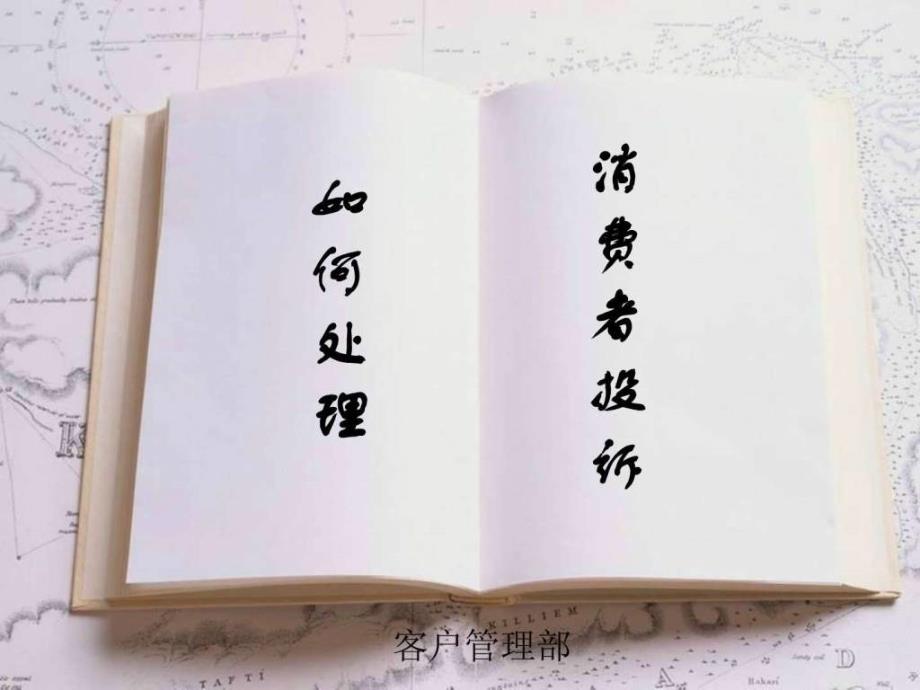 如何处理
消费者投诉
客户管理部
KILLIEM
TAFTÍ
Bakarí
D